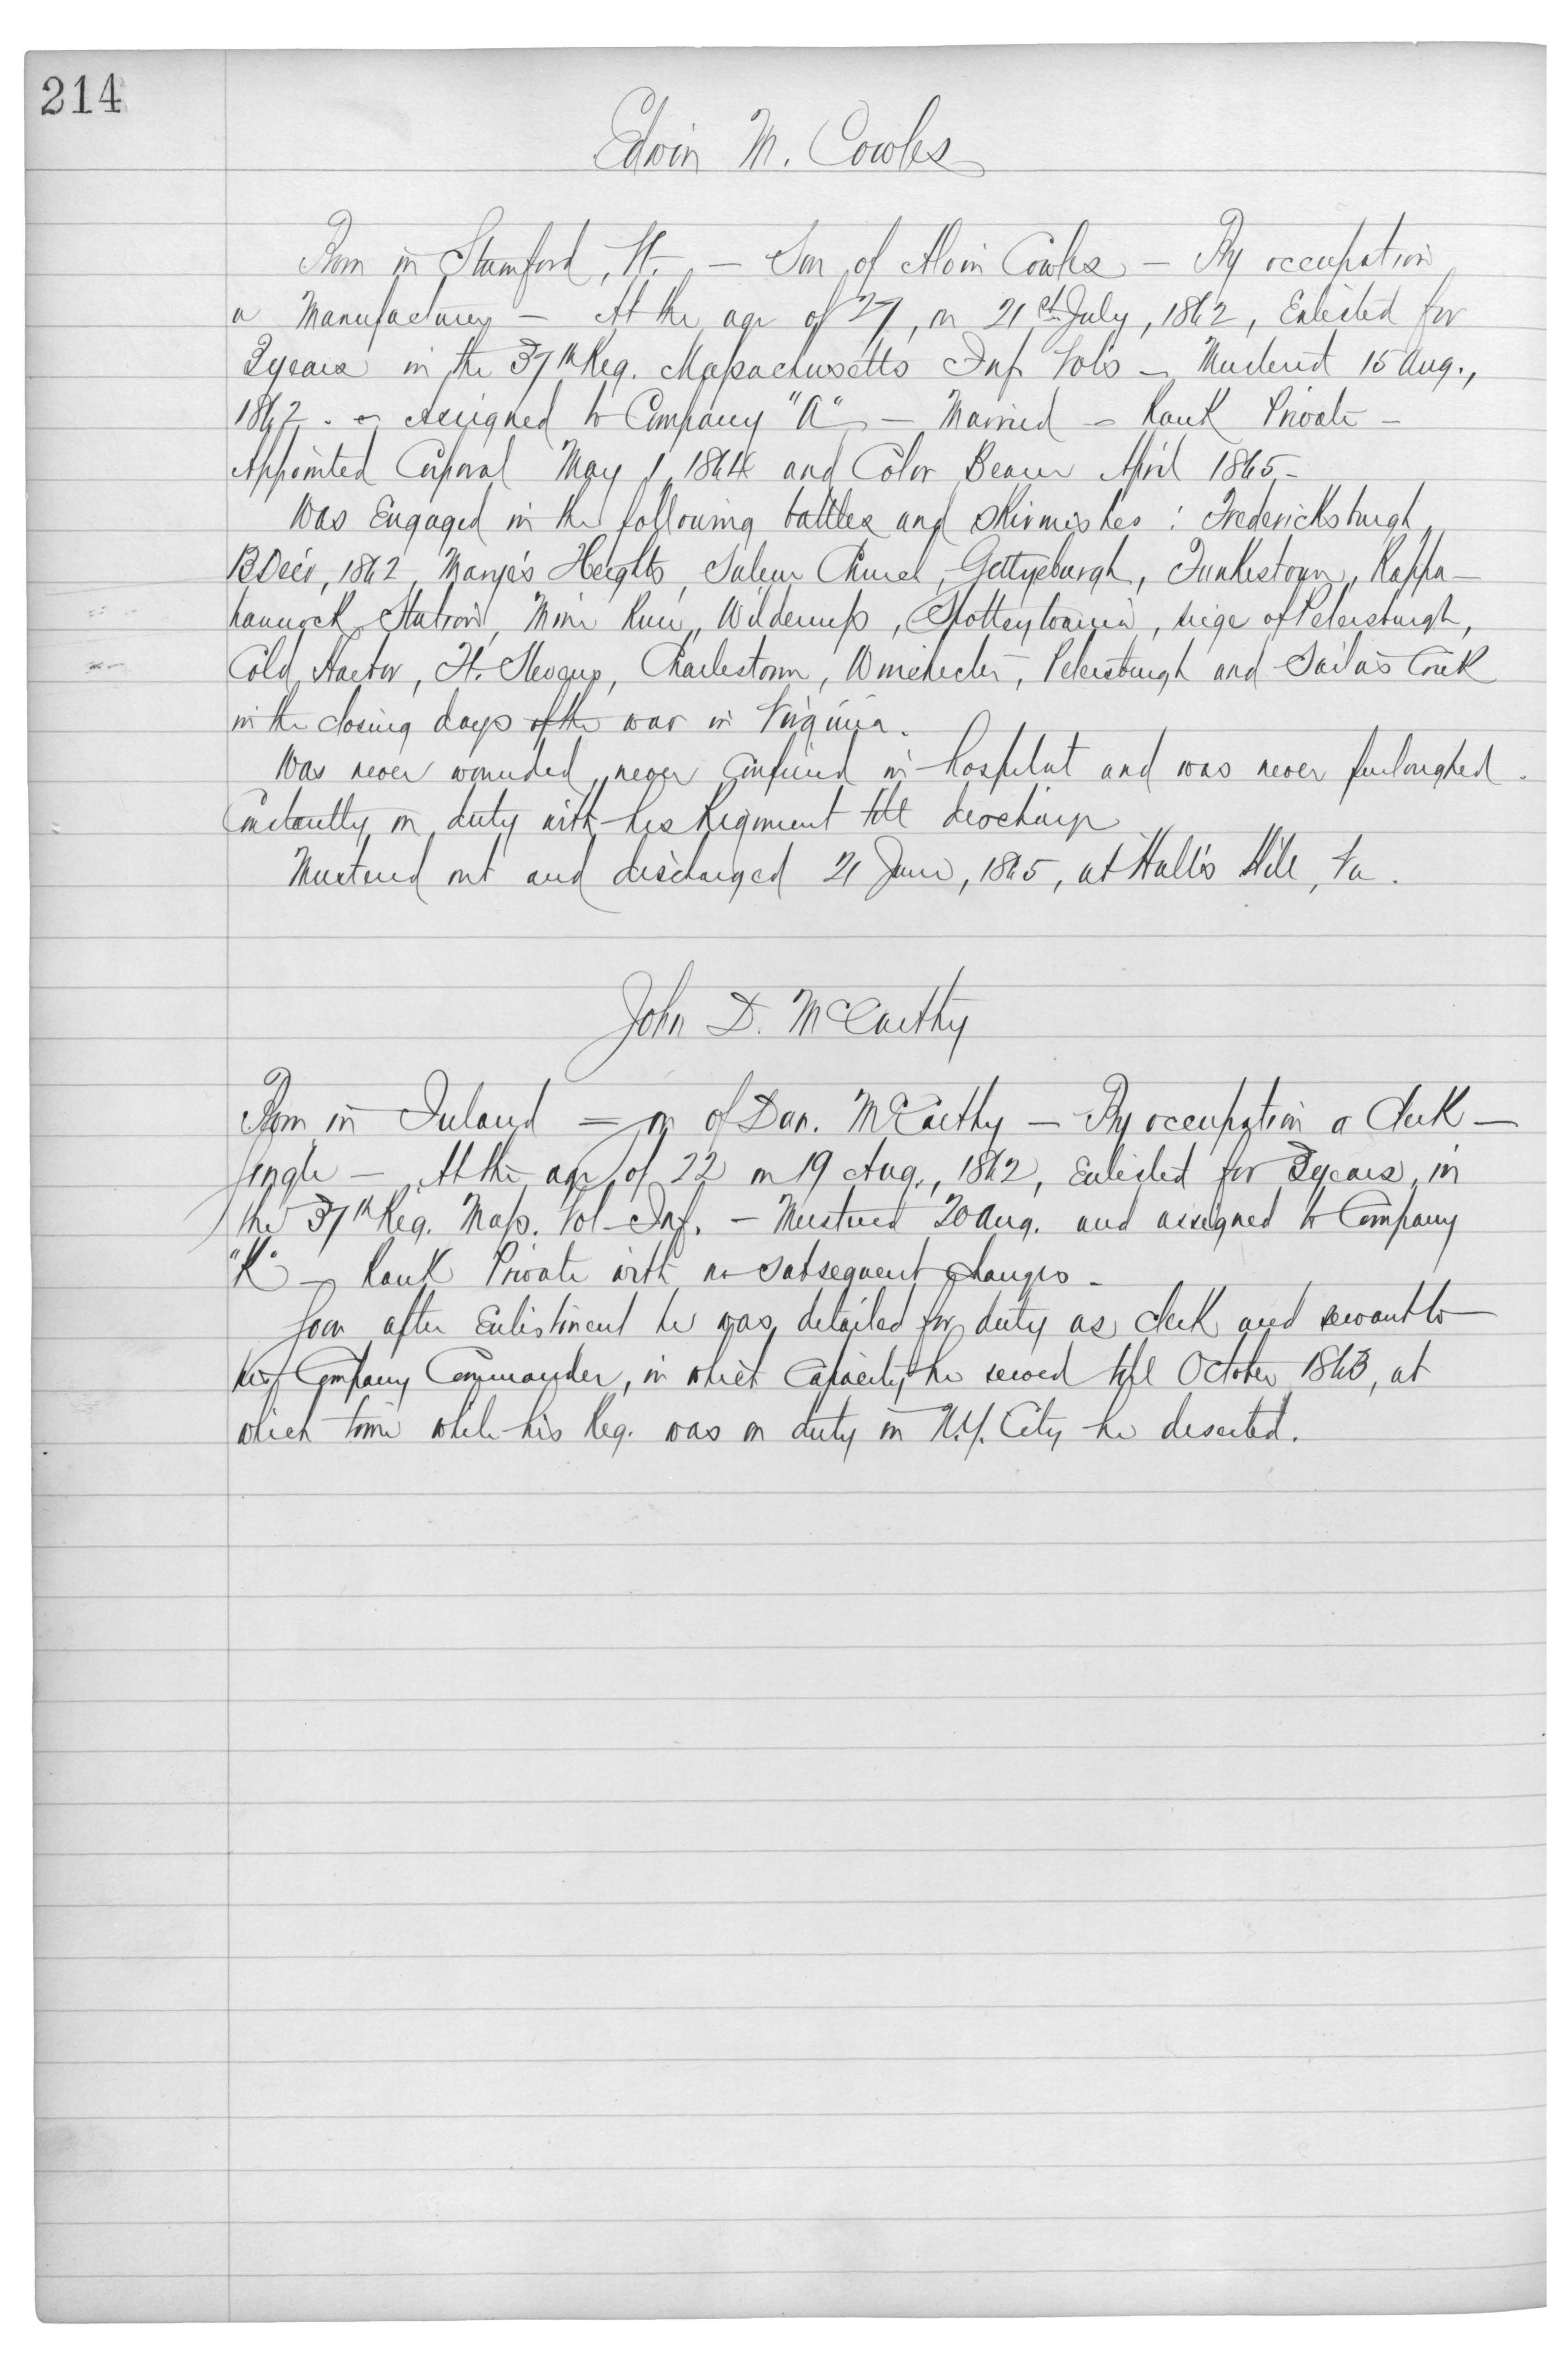 214
Edwin M. Cowles
Born in Stamford, Vt. — Son of Alvin Cowles — By occupation
a Manufacturer — At the age of 27, on 21st July, 1862, Enlisted for
3 years in the 37th Reg. Massachusetts Inf. Vols — Mustered 15 Aug.,
1862. — Assigned to Company "A" — Married — Rank Private —
Appointed Corporal May 1, 1864 and Color Bearer April 1865 —
Was Engaged in the following battles and skirmishes: Fredericksburgh,
13 Dec, 1862, Marye's Heights, Salem Church, Gettysburgh, Funkestown, Rappa-
hannock Station, Mine Run, Wilderness, Spottsylvania, siege of Petersburgh,
Cold Harbor, Ft. Stevens, Charlestown, Winchester, Petersburgh and Sailor's Creek
in the closing days of the war in Virginia.
Was never wounded, never confined in hospital and was never furloughed.
Constantly on duty with his Regiment till discharge
Mustered out and discharged 21 June, 1865, at Hall's Hill, Va.
John D. McCarthy
Born in Ireland — son of Dan. McCarthy — By occupation a Clerk —
Single — At the age of 22 on 19 Aug., 1862, Enlisted for 3 years, in
the 37th Reg. Mass. Vol. Inf. — Mustered 20 Aug. and assigned to Company
"K" — Rank Private with no subsequent changes —
Soon after Enlistment he was detailed for duty as clerk and servant to
his Company Commander, in which Capacity he served till October 1863, at
which time while his Reg. was on duty in N.Y. City he deserted.